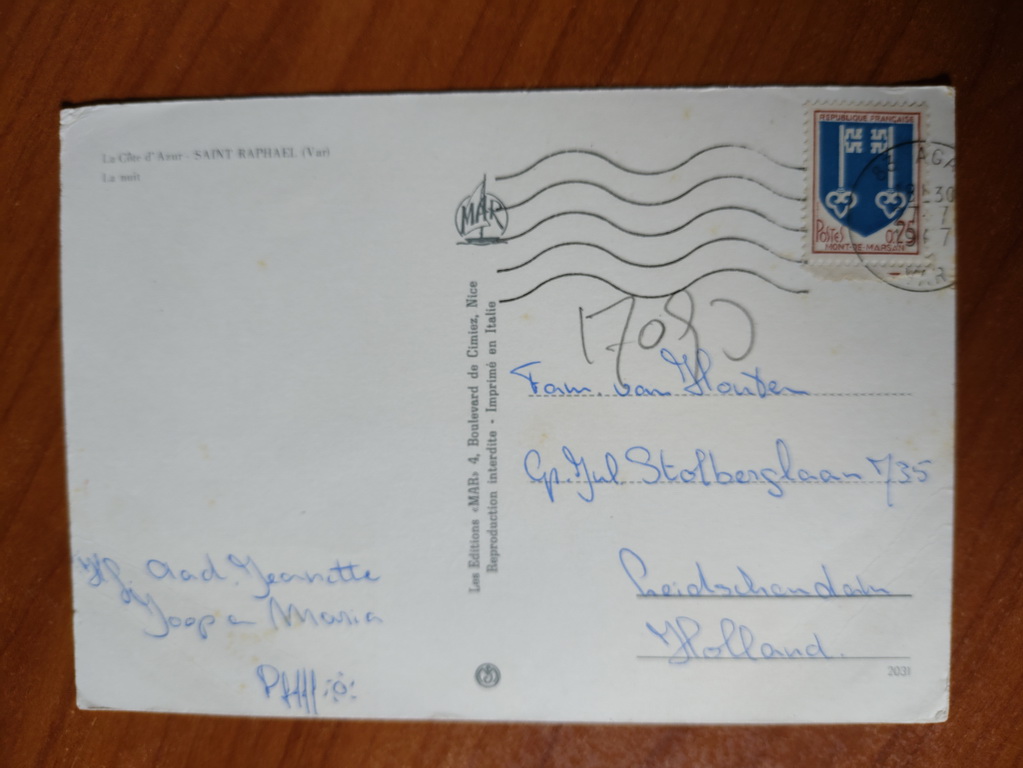 La Côte d'Azur - SAINT RAPHAEL (Var)
La nuit
MAR
Les Editions «MAR» 4, Boulevard de Cimiez, Nice
Reproduction interdite - Imprimé en Italie
REPUBLIQUE FRANÇAISE
POSTES 0,25
MONT-DE-MARSAN
AGA
30
7
Fam. van Houten
Gr. Jul Stolberglaan 735
Leidschendam
Holland.
Aad, Jeanette
Joop en Maria
2031